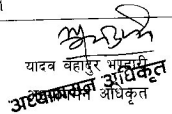 यादव बहादुर भण्डारी
अध्यागमन अधिकृत
अध्यागमन अधिकृत